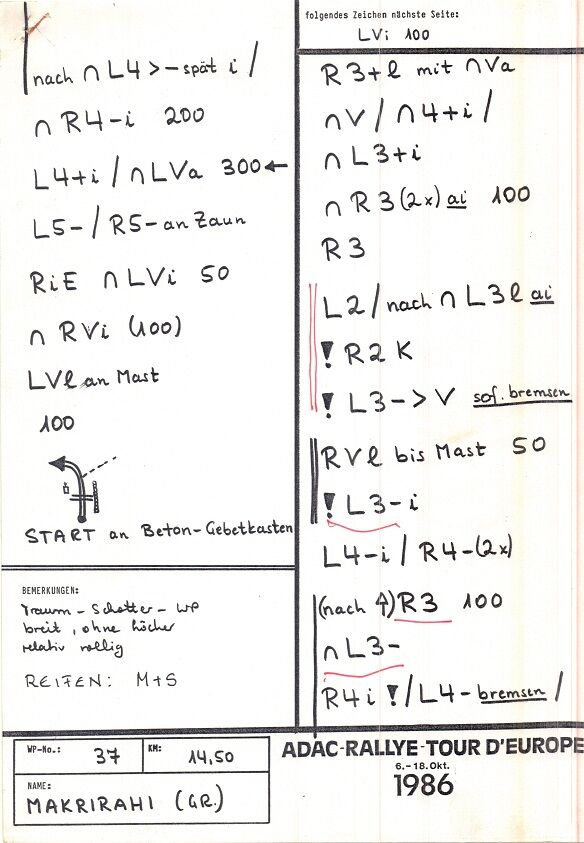 nach ∩ L4 >- spät i /
∩ R4-i 200
L4+i / ∩ LVa 300 ←
L5- / R5- an Zaun
RiE ∩ LVi 50
∩ RVi (100)
LVl an Mast
100
START an Beton-Gebetkasten
BEMERKUNGEN:
Traum-Schotter-WP
breit, ohne höcher
relativ rollig
REIFEN: M+S
folgendes Zeichen nächste Seite:
LVi 100
R3+l mit ∩Va
∩V / ∩4+i /
∩ L3+i
∩ R3 (2x) ai 100
R3
L2 / nach ∩ L3l ai
! R2 K
! L3- > V sof. bremsen
RVl bis Mast 50
! L3-i
L4-i / R4-(2x)
(nach ⇧) R3 100
∩ L3-
R4i ! / L4- bremsen /
WP-No.: 37 KM: 14,50
NAME:
MAKRIRAHI (GR.)
ADAC-RALLYE-TOUR D'EUROPE
6.-18.Okt.
1986